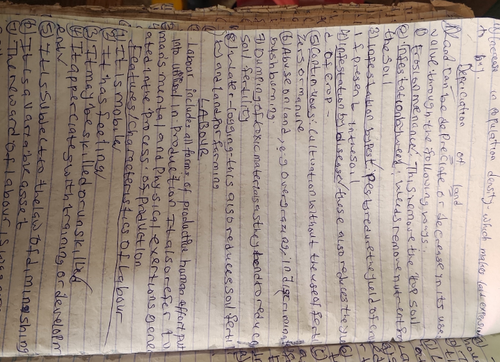 Increase in population density, which makes land expensive
to buy.
Depreciation of land
Land can be depreciate or decrease in its use
value through the following ways.
1) Erosion menance: This remove the top soil
2) Infestation by weed; weeds remove nutrient from
the soil
3) Infestation by pest; pests reduce the yield of crop
if present in the soil
4) Infestation by diseases; these also reduces the yield
of crop
5) Continuous cultivation without the use of fertili
zers or manure
6) Abuse on land, e.g overgrazing, indiscriminate
bush burning
7) Dumping of toxic materials as they tend to reduce
soil fertility
8) Water-logging - this also reduces soil ferti
lity and land for farming
LABOUR
Labour includes all forms of productive human effort put
into utilised in production. It also refer to
man's mental and physical exertions gene
rated in the process of production
Features/Characteristics of Labour
1) It is mobile
2) It has feeling
3) It may be skilled or unskilled
4) It appreciates with training or developm
ent
5) It is subjected to the law of diminishing
6) It is a variable asset
7) The reward of labour is wages